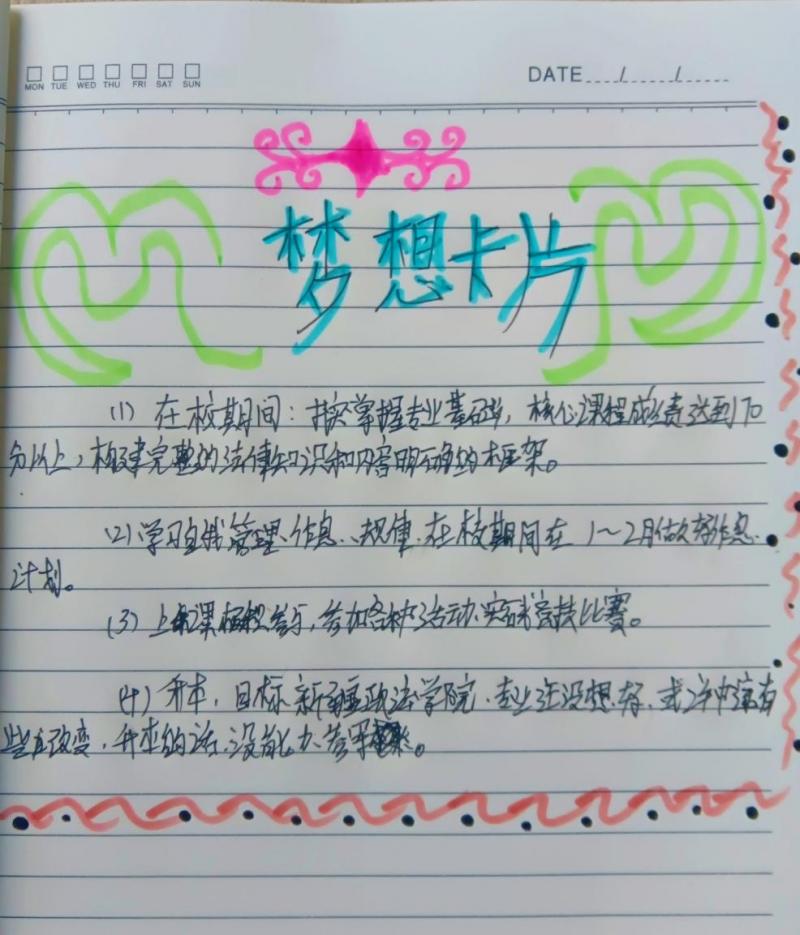 MON TUE WED THU FRI SAT SUN
DATE
梦想卡片
(1) 在校期间：扎实掌握专业基础，核心课程成绩达到70
分以上，构建完整的法律知识和内容明确的框架。
(2) 学习自我管理、作息、规律、在校期间在1～2月做好作息
计划。
(3) 上课积极参与，参加各种活动、实践竞技比赛。
(4) 升本，目标新疆政法学院、专业还没想好，或许中途有
些改变，升本的话、没能力